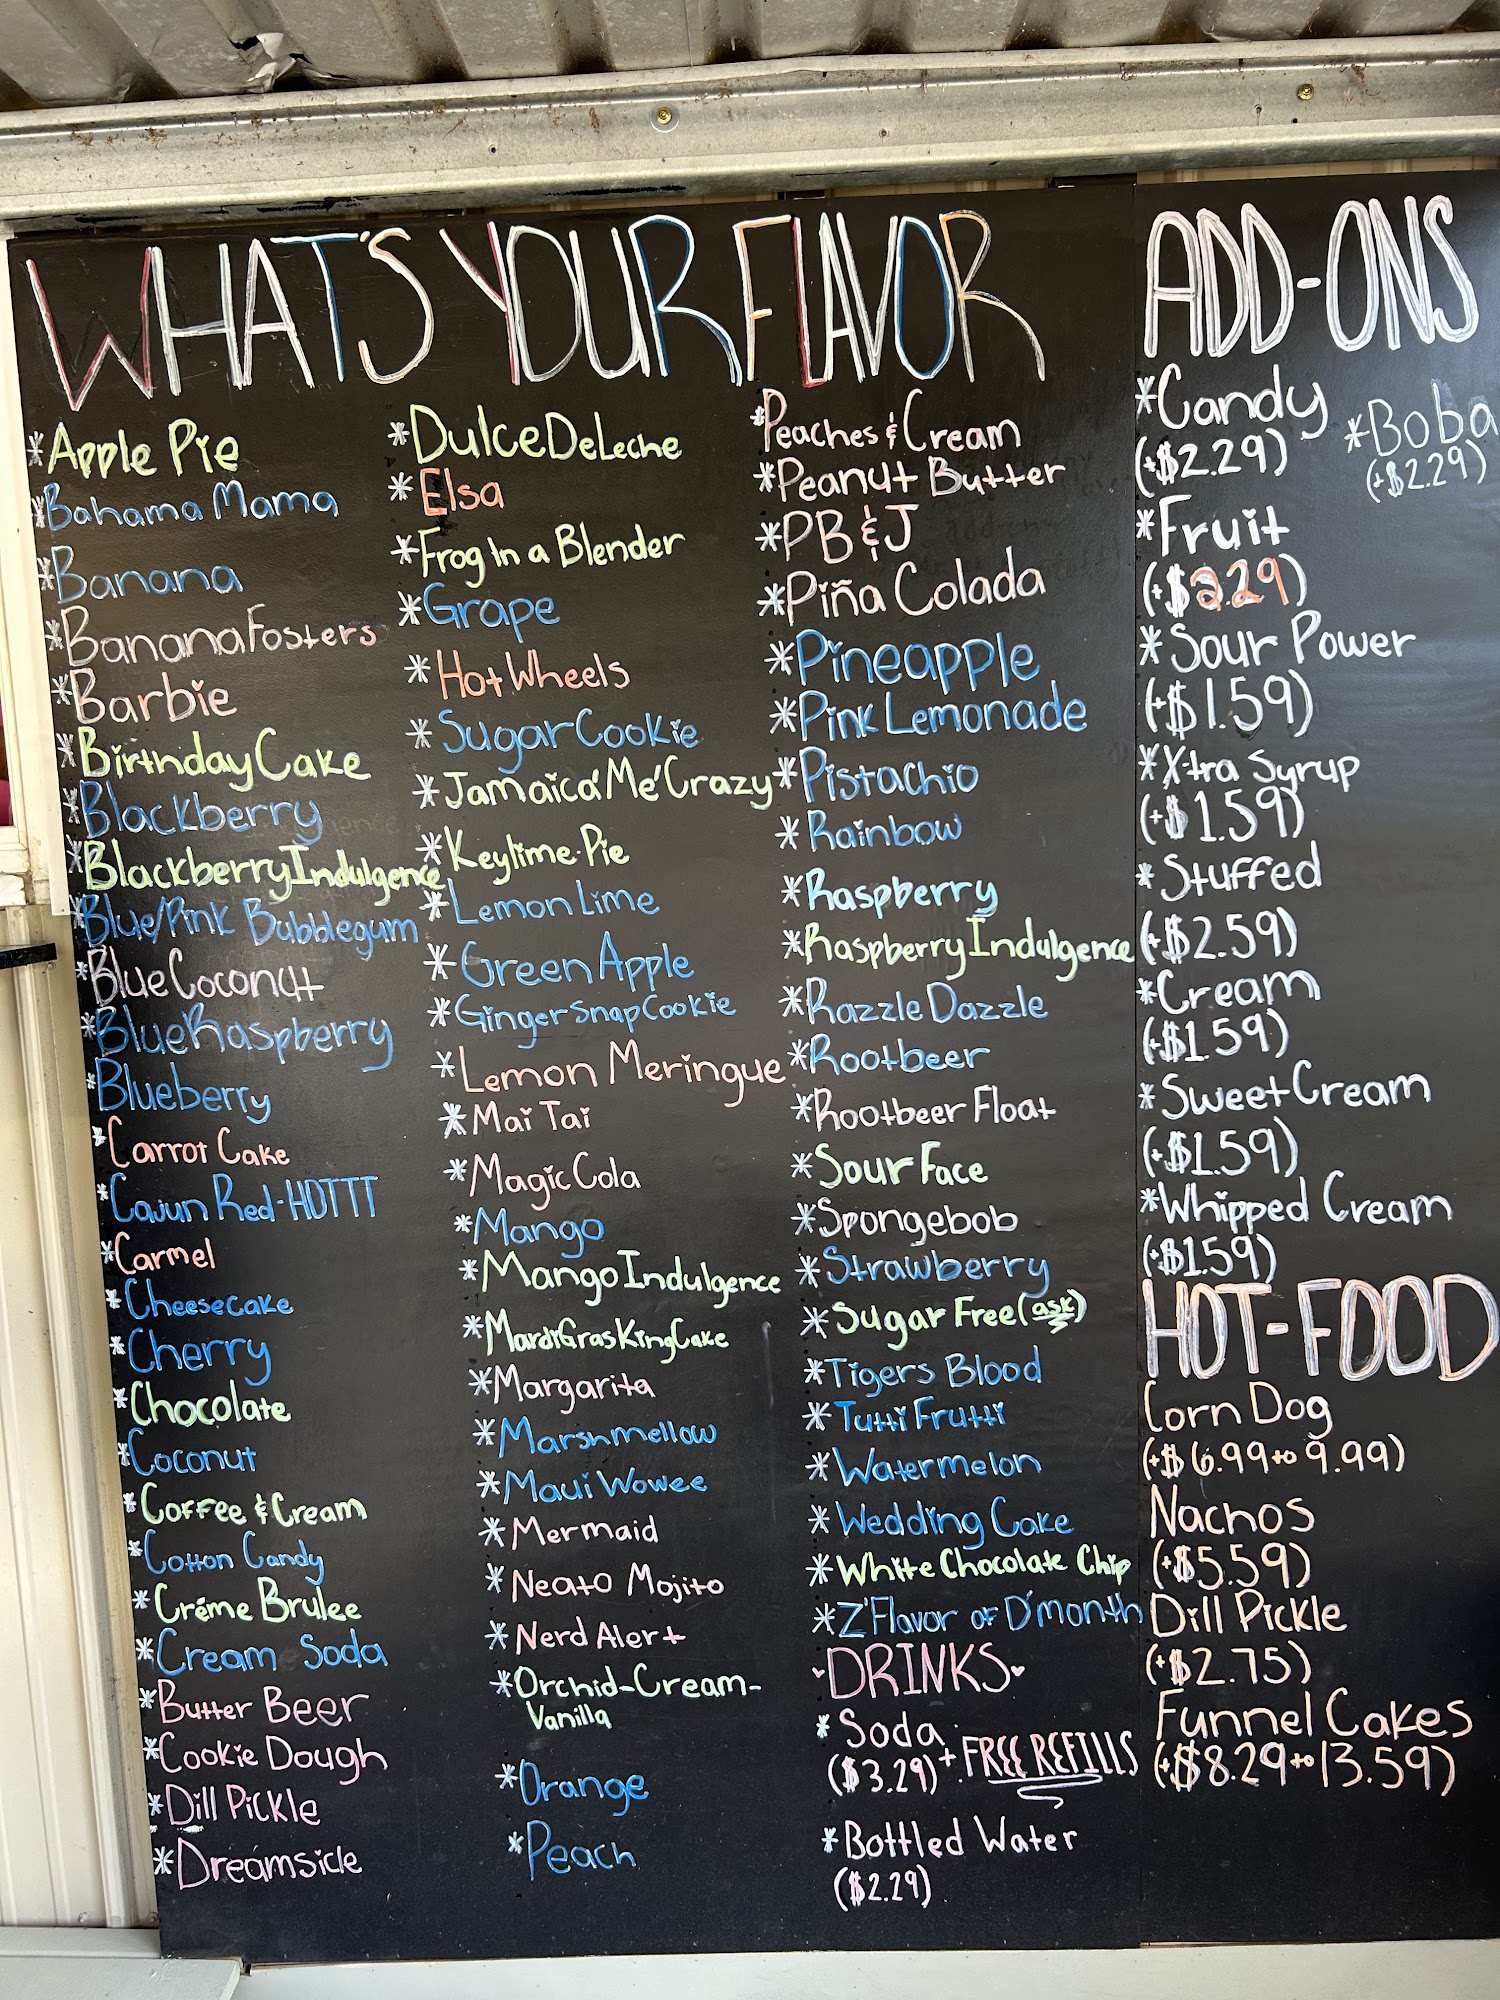 WHAT'S YOUR FLAVOR
*Apple Pie
*Bahama Mama
*Banana
*Banana Fosters
*Barbie
*Birthday Cake
*Blackberry
*Blackberry Indulgence
*Blue/Pink Bubblegum
*Blue Coconut
*Blue Raspberry
*Blueberry
*Carrot Cake
*Cajun Red-HOTTT
*Carmel
*Cheesecake
*Cherry
*Chocolate
*Coconut
*Coffee & Cream
*Cotton Candy
*Créme Brulee
*Cream Soda
*Butter Beer
*Cookie Dough
*Dill Pickle
*Dreamsicle
*Dulce De Leche
*Elsa
*Frog in a Blender
*Grape
*Hot Wheels
*Sugar Cookie
*Jamaica 'Me' Crazy
*Keylime-Pie
*Lemon Lime
*Green Apple
*Ginger Snap Cookie
*Lemon Meringue
*Mai Tai
*Magic Cola
*Mango
*Mango Indulgence
*Mardi Gras King Cake
*Margarita
*Marshmellow
*Maui Wowee
*Mermaid
*Neato Mojito
*Nerd Alert
*Orchid-Cream-
Vanilla
*Orange
*Peach
*Peaches & Cream
*Peanut Butter
*PB & J
*Piña Colada
*Pineapple
*Pink Lemonade
*Pistachio
*Rainbow
*Raspberry
*Raspberry Indulgence
*Razzle Dazzle
*Rootbeer
*Rootbeer Float
*Sour Face
*Spongebob
*Strawberry
*Sugar Free (ask)
*Tigers Blood
*Tutti Frutti
*Watermelon
*Wedding Cake
*White Chocolate Chip
*Z'Flavor of D'month
DRINKS
*Soda
($3.29) + FREE REFILLS
*Bottled Water
($2.29)
ADD-ONS
*Candy
(+$2.29)
*Boba
(+$2.29)
*Fruit
(+$2.29)
*Sour Power
(+$1.59)
*X-tra Syrup
(+$1.59)
*Stuffed
(+$2.59)
*Cream
(+$1.59)
*Sweet Cream
(+$1.59)
*Whipped Cream
(+$1.59)
HOT-FOOD
Corn Dog
(+$6.99 to 9.99)
Nachos
(+$5.59)
Dill Pickle
(+$2.75)
Funnel Cakes
(+$8.29 to 13.59)